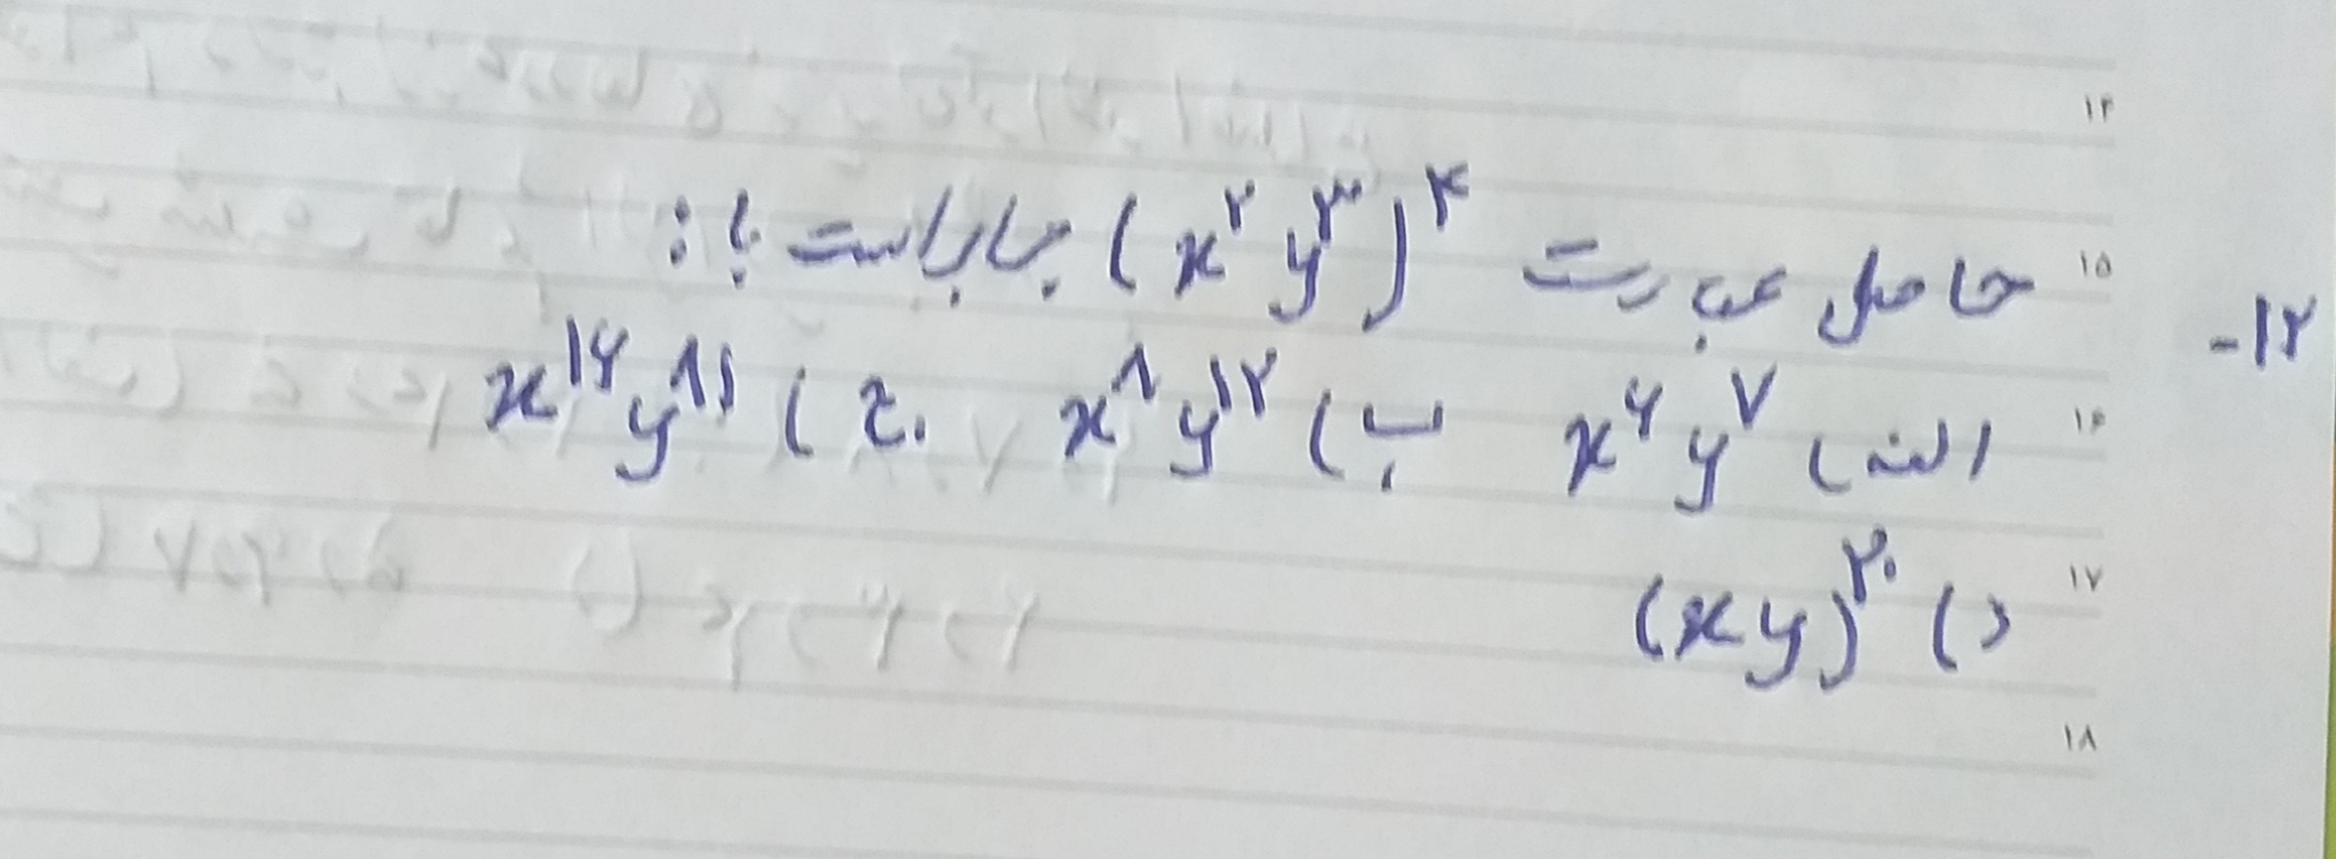 ۱۴
۱۲- حاصل عبارت (x^۲ y^۳)^۴ برابر است با:
۱۵
الف) x^۶ y^۷ ب) x^۸ y^۱۲ ج) x^۱۶ y^۸۱
۱۶
د) (xy)^۲۰
۱۷
۱۸